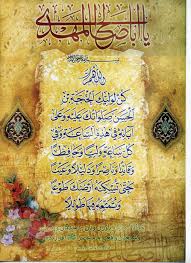 يا أبا صالح المهدي
بسم الله الرحمن الرحيم
اللهم
كن لوليك الحجة بن
الحسن صلواتك عليه وعلى
آبائه في هذه الساعة وفي
كل ساعة وليا وحافظا
وقائدا وناصرا ودليلا وعينا
حتى تسكنه ارضك طوعا
وتمتعه فيها طويلا